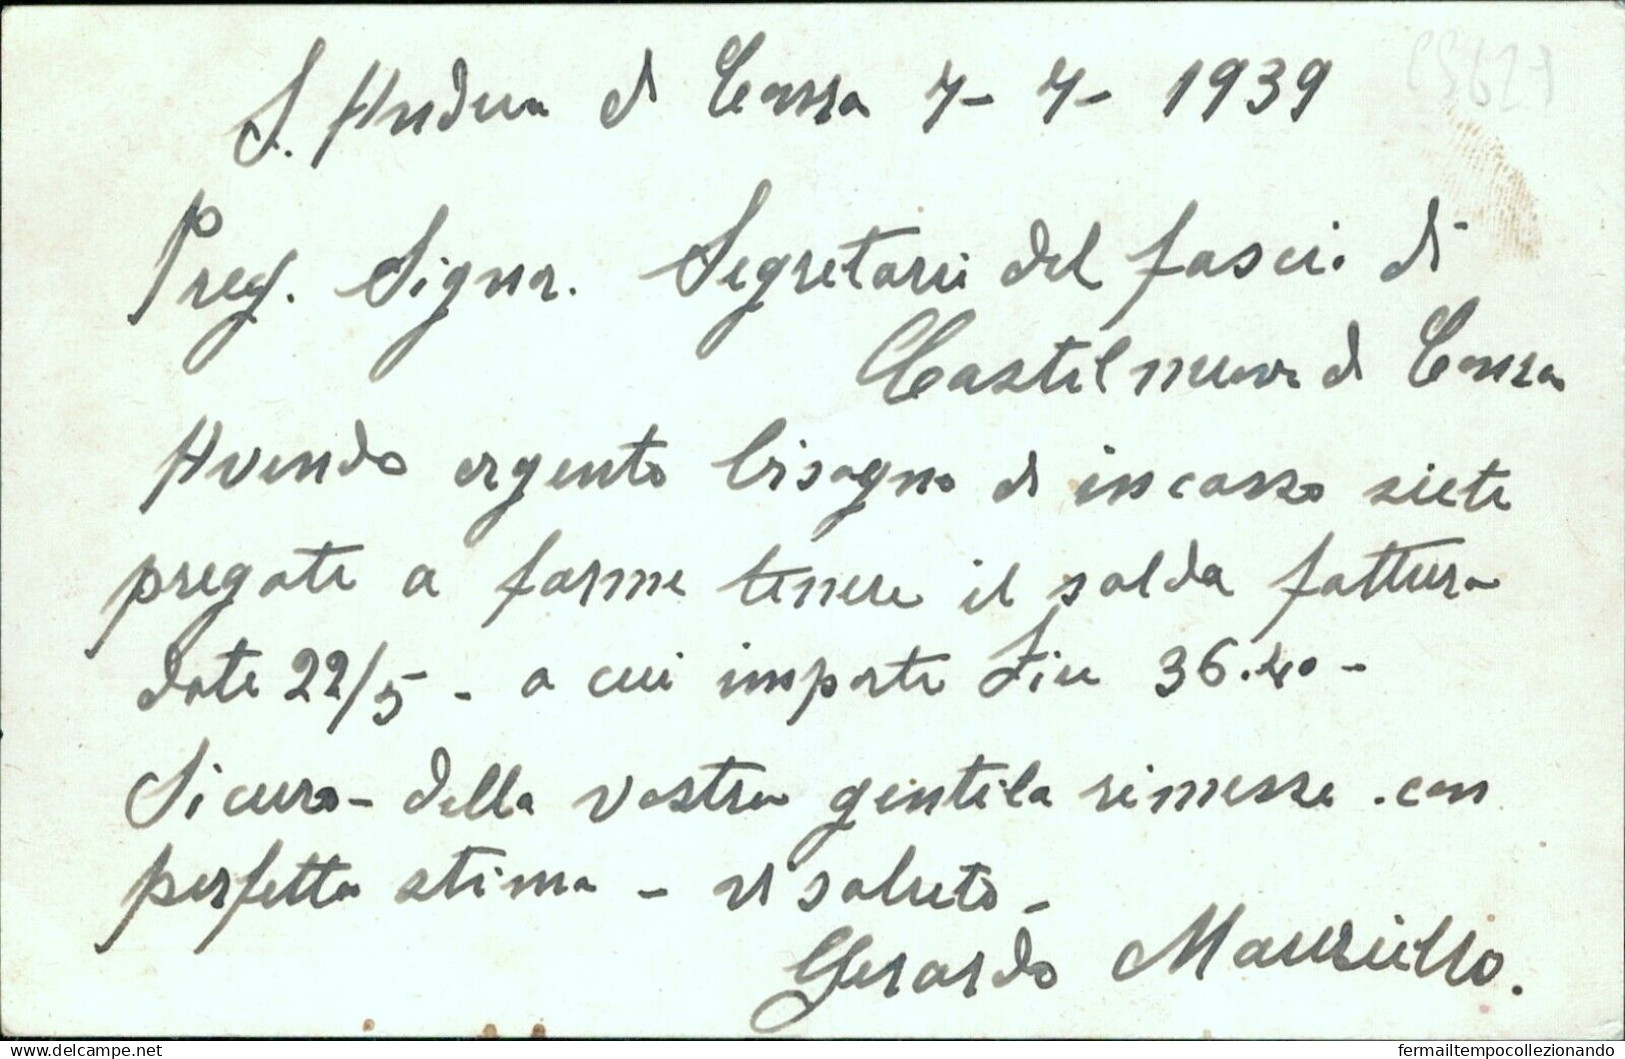 S. Andrea di Conza 7 - 7 - 1939
CS627
Preg. Signor. Segretari del fasci. di
Castelnuovo di Conza
Avendo urgente bisogno di incasso siete
pregati a farme tenere il salda fattura
date 22/5 - a cui importe Lire 36.40 -
Sicuro - della vostra gentila rimesse. con
perfetta stima - vi saluto -
Gerardo Mauriello.
www.delcampe.net
fermailtempocollezionando